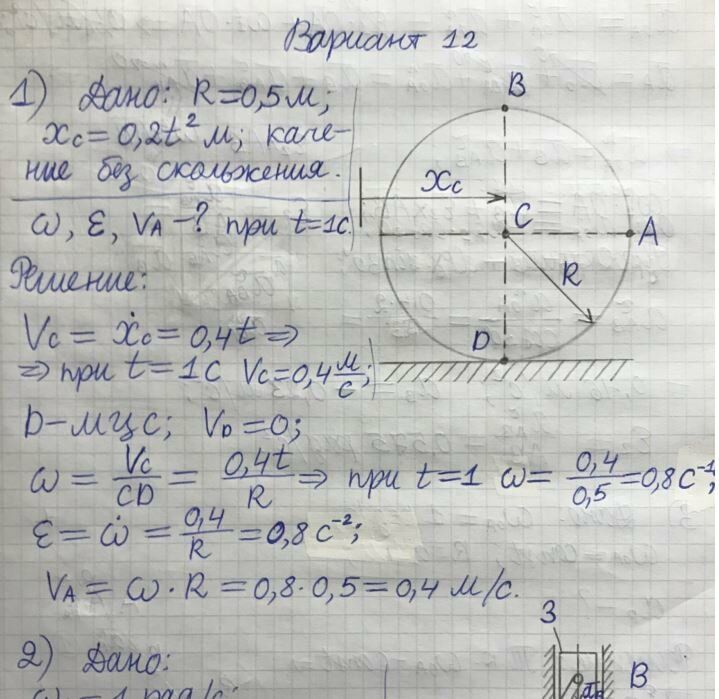 Вариант 12
1) Дано: R=0,5м;
xc=0,2t² м; каче-
ние без скольжения.
ω, ε, VA -? при t=1с.
B
xc
C
A
R
D
Решение:
Vc = ẋc = 0,4t ⇒
⇒ при t = 1с Vc=0,4 м/с;
D-мцс; VD=0;
ω = Vc/CD = 0,4t/R ⇒ при t=1 ω= 0,4/0,5 =0,8с⁻¹;
ε = ω̇ = 0,4/R = 0,8 с⁻²;
VA = ω·R = 0,8·0,5 = 0,4 м/с.
2) Дано:
3
B